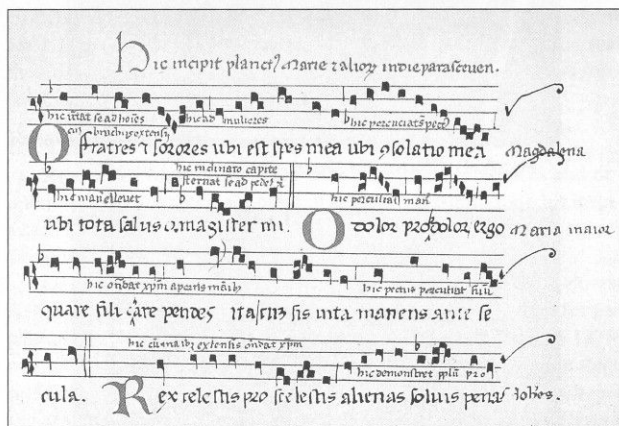 hic incipit planct⁹ Marie ⁊ alioꝝ in die parasceven.
hic ad mulieres hic percuciat s pect
O fratres ⁊ sorores ubi est spes mea ubi ꝯsolatio mea Magdalena
hic inclinato capite
hic man⁹ elevet sternat se ad pedes hic percutiat man⁹
ubi tota salus o magister mi. O dolor proh dolor ergo Maria maior
hic ondat xp̄m apertis manib hic pectus percutiat suū
quare fili care pendes ita cuꝫ sis uita manens ante se
hic cū manib extensis ondat xp̄m
hic demonstret pplū pro
cula. Rex celestis pro scelestis alienas soluis penas Joh̄es.